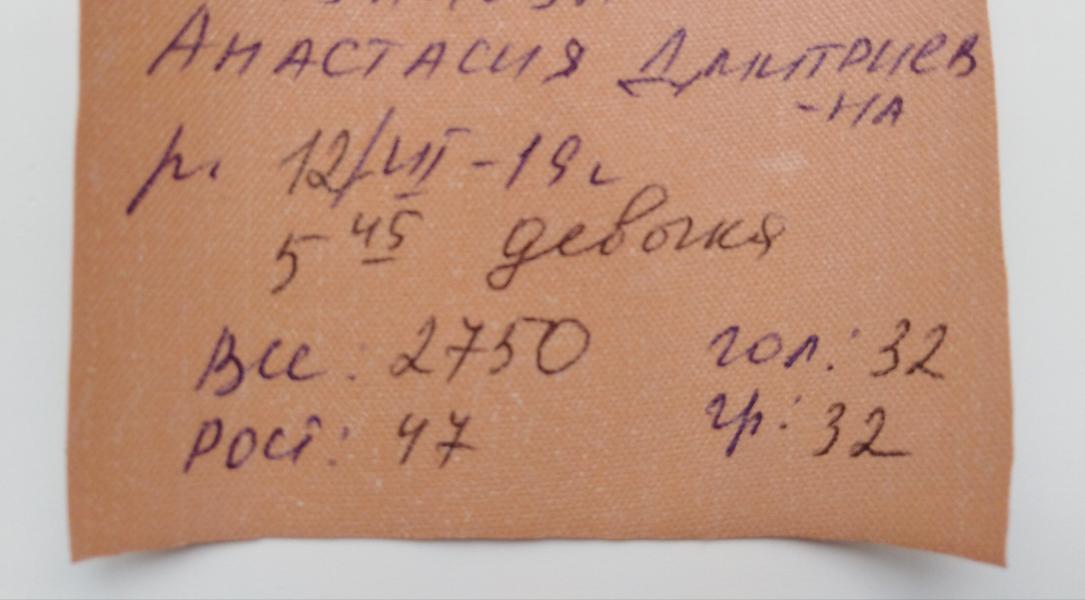 Анастасия Дмитриев
-на
р. 12/VII-19г
5 45 девочка
Вес: 2750 гол: 32
Рост: 47 гр: 32